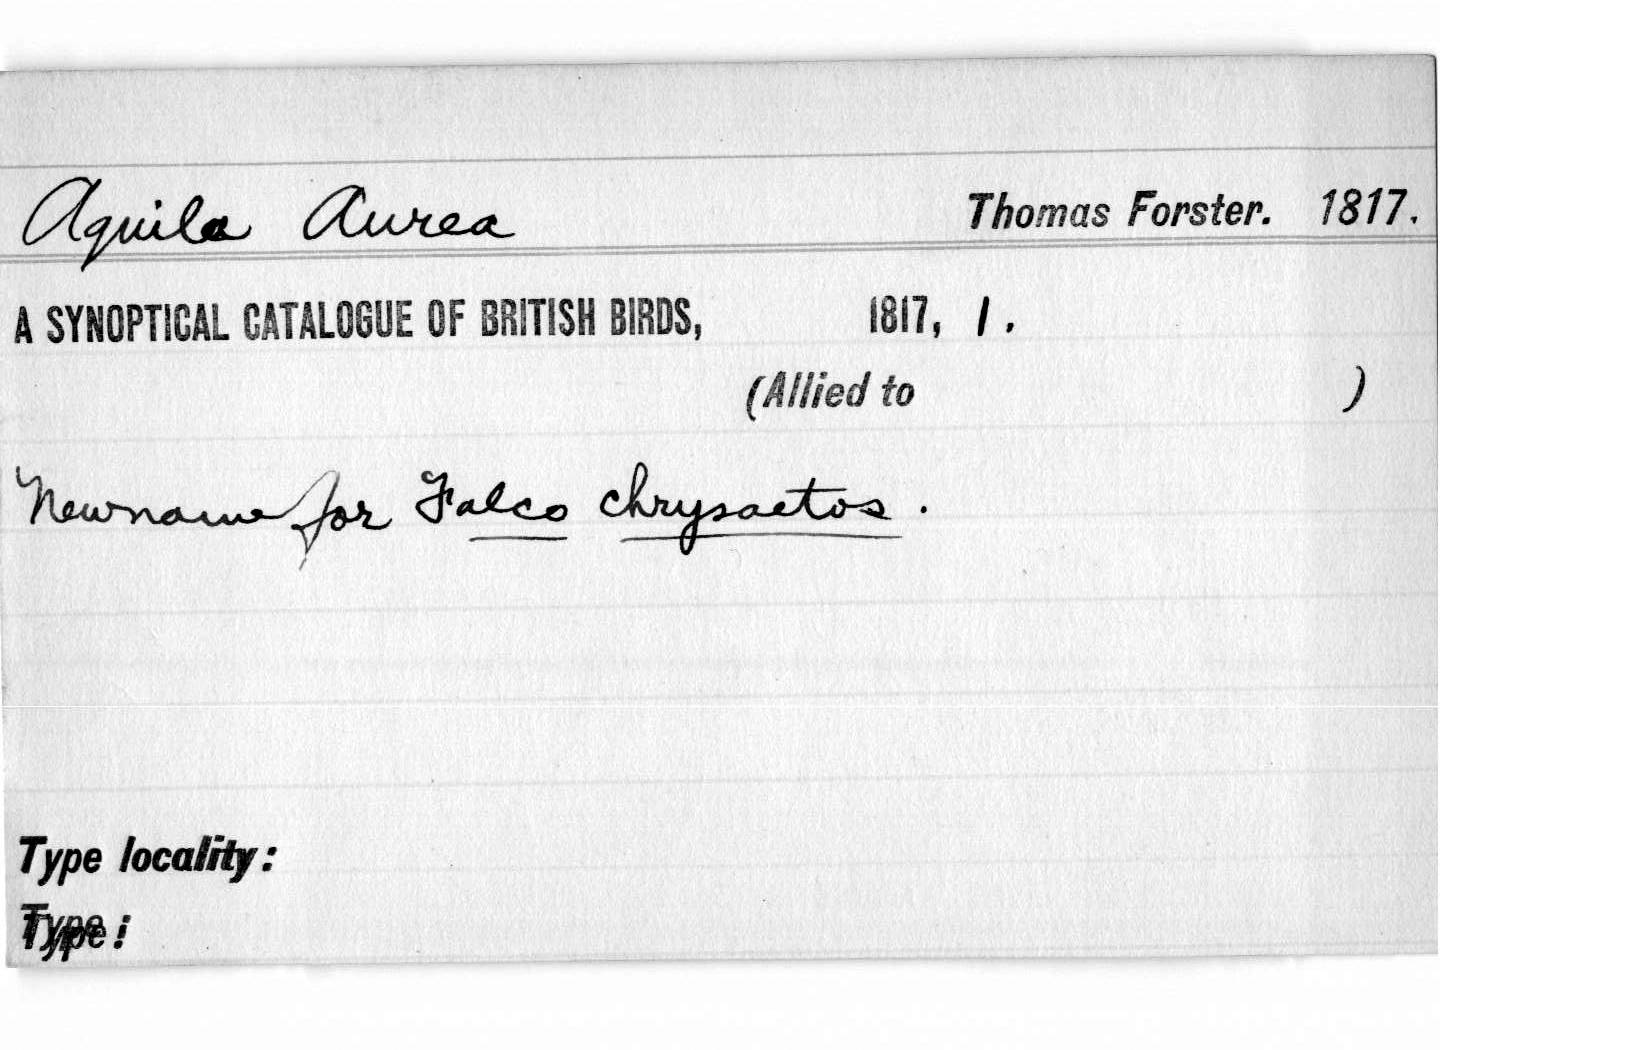 Aquila Aurea Thomas Forster. 1817.
A SYNOPTICAL CATALOGUE OF BRITISH BIRDS, 1817, 1.
(Allied to )
New name for Falco chrysaetos.
Type locality:
Type: